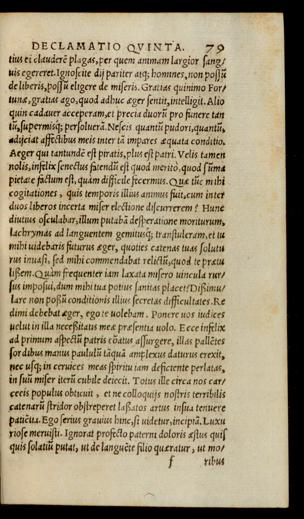 DECLAMATIO QVINTA. 79
tius ei clauderẽ plagas, per quem animam largior sang/
uis egereret. Ignoscite dij pariter atq; homines, non possũ
de liberis, possũ eligere de miseris. Gratias quinimo For/
tunæ, gratias ago, quod adhuc æger sentit, intelligit. Alio
quin cadauer acceperam, et precia duorũ pro funere tan
tũ, supermisq; persoluerã. Nescis quantũ pudori, quantũ,
adijciat affectibus meis inter tã impares æquata conditio.
Aeger qui tantundẽ est piratis, plus est patri. Velis tamen
nolis, infelix senectus fatendũ est quod meritò, quod sũma
pietate factum est, quàm difficile fecerimus. Quæ tũc mihi
cogitationes, quis temporis illius animus fuit, cum inter
duos liberos incerta miser electione discurrerem? Hunc
diutius osculabar, illum putabã desperatione moriturum,
lachrymas ad languentem gemitusq; transtuleram, et tu
mihi uidebaris futurus æger, quoties catenas tuas solutu
rus inuasi, sed mihi commendabat relictũ, quod te prætu
lissem. Quàm frequenter iam laxata misero uincula rur/
sus imposui, dum mihi tua potius sanitas placet? Dissimu/
lare non possũ conditionis illius secretas difficultates. Re
dimi debebat æger, ego te uolebam. Ponere uos iudices
uelut in illa necessitatus meæ præsentia uolo. Ecce infelix
ad primum aspectũ patris cõatus assurgere, illas pallẽtes
sordibus manus paululũ tãquã amplexus daturus erexit,
nec usq; in ceruices meas spiritu iam deficiente perlatas,
in suũ miser iterũ cubile deiecit. Totus ille circa nos car/
ceris populus obticuit, et ne colloquijs nostris terribilis
catenarũ stridor obstreperet lassatos artus insua tenuere
patiẽtia. Ego serius grauius hinc, si uidetur, incipiã. Luxu
riose meruisti. Ignorat profecto paterni doloris æstus quis
quis solatiũ putat, ut de languẽte filio quæratur, ut mo/
f ribus